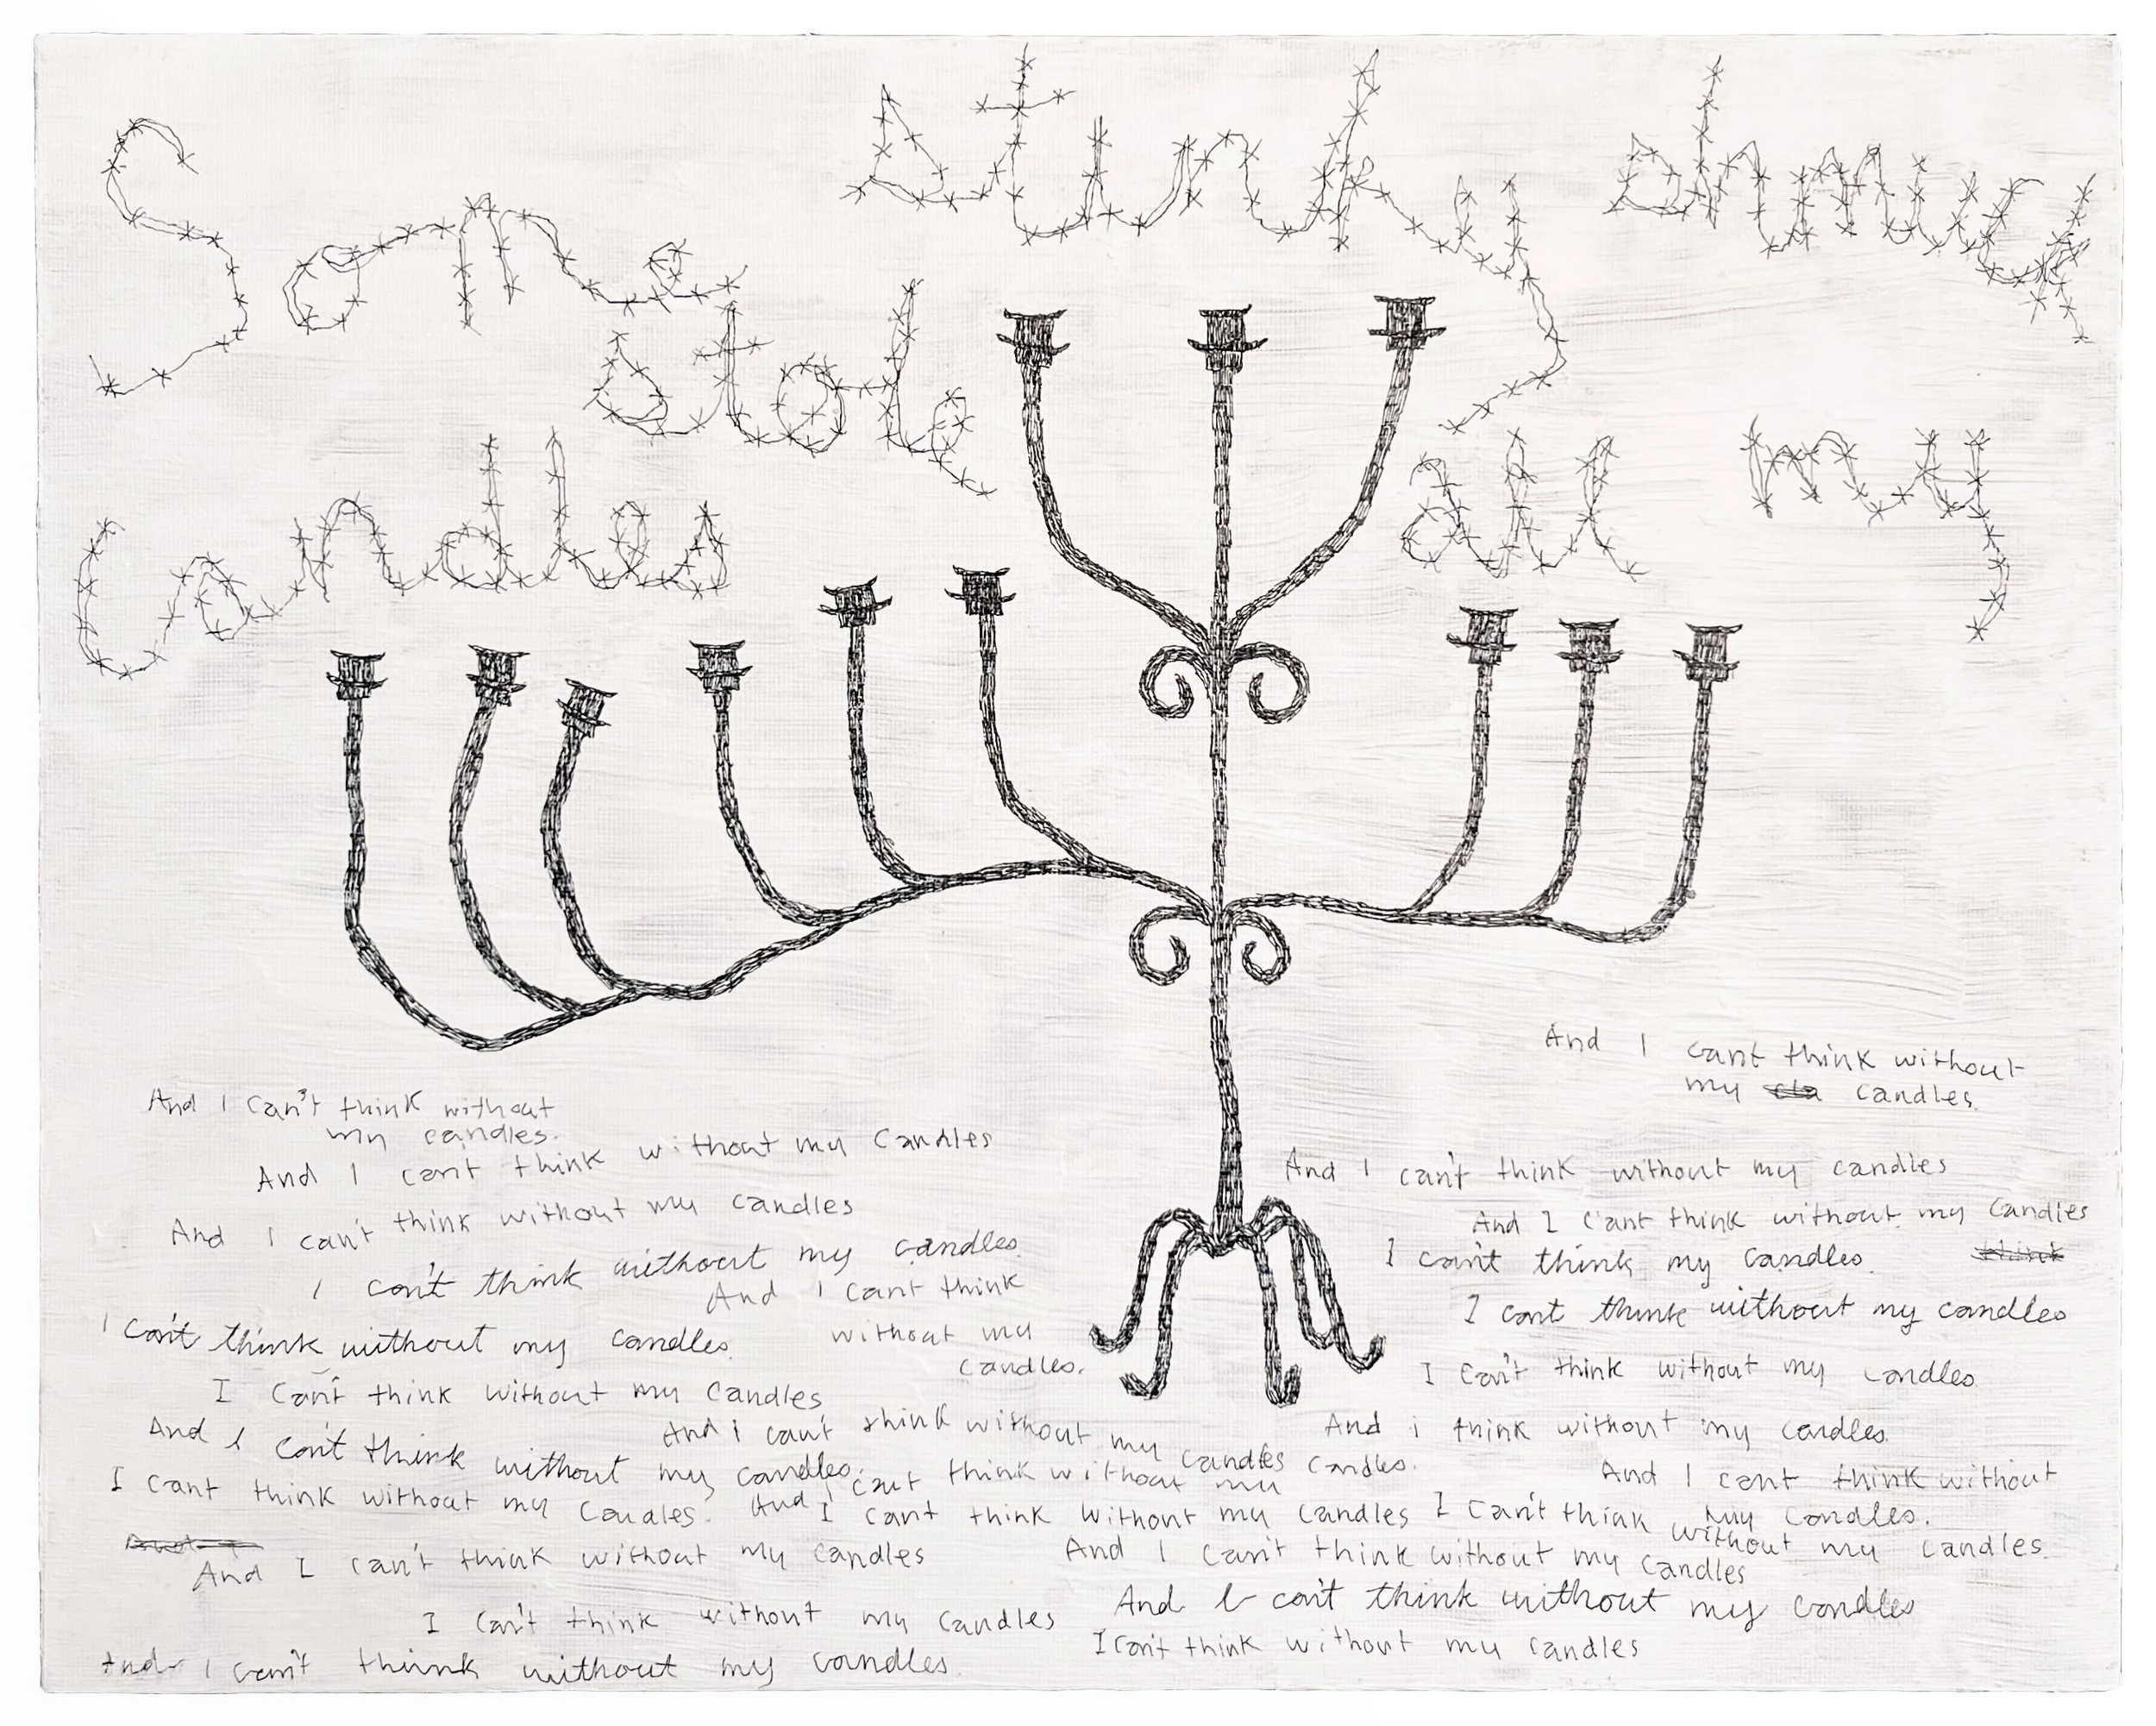 Some stinky shmuck
stole
candles all my
And I cant think without
my cla candles.
And I can't think without
my candles.
And I cant think without my candles
And I can't think without my candles
I can't think without my candles.
And I cant think
without my
candles.
I can't think without my candles.
I Can't think without my candles
And I can't think without my candles.
And i can't think without my candles
I cant think without my Candles.
And I cant think without my candles.
And I can't think without my candles
And I can't think without my candles
I can't think without my candles
And I can't think without my candles.
And I can't think without my candles
And I can't think without my candles
I can't think my candles. think
I cant think without my candles
I Can't think without my candles
And i think without my candles.
And I cant think without
my candles.
I cant think without my candles
I Can't think without my candles.
And I can't think without my candles
And I can't think without my candles
I Can't think without my candles